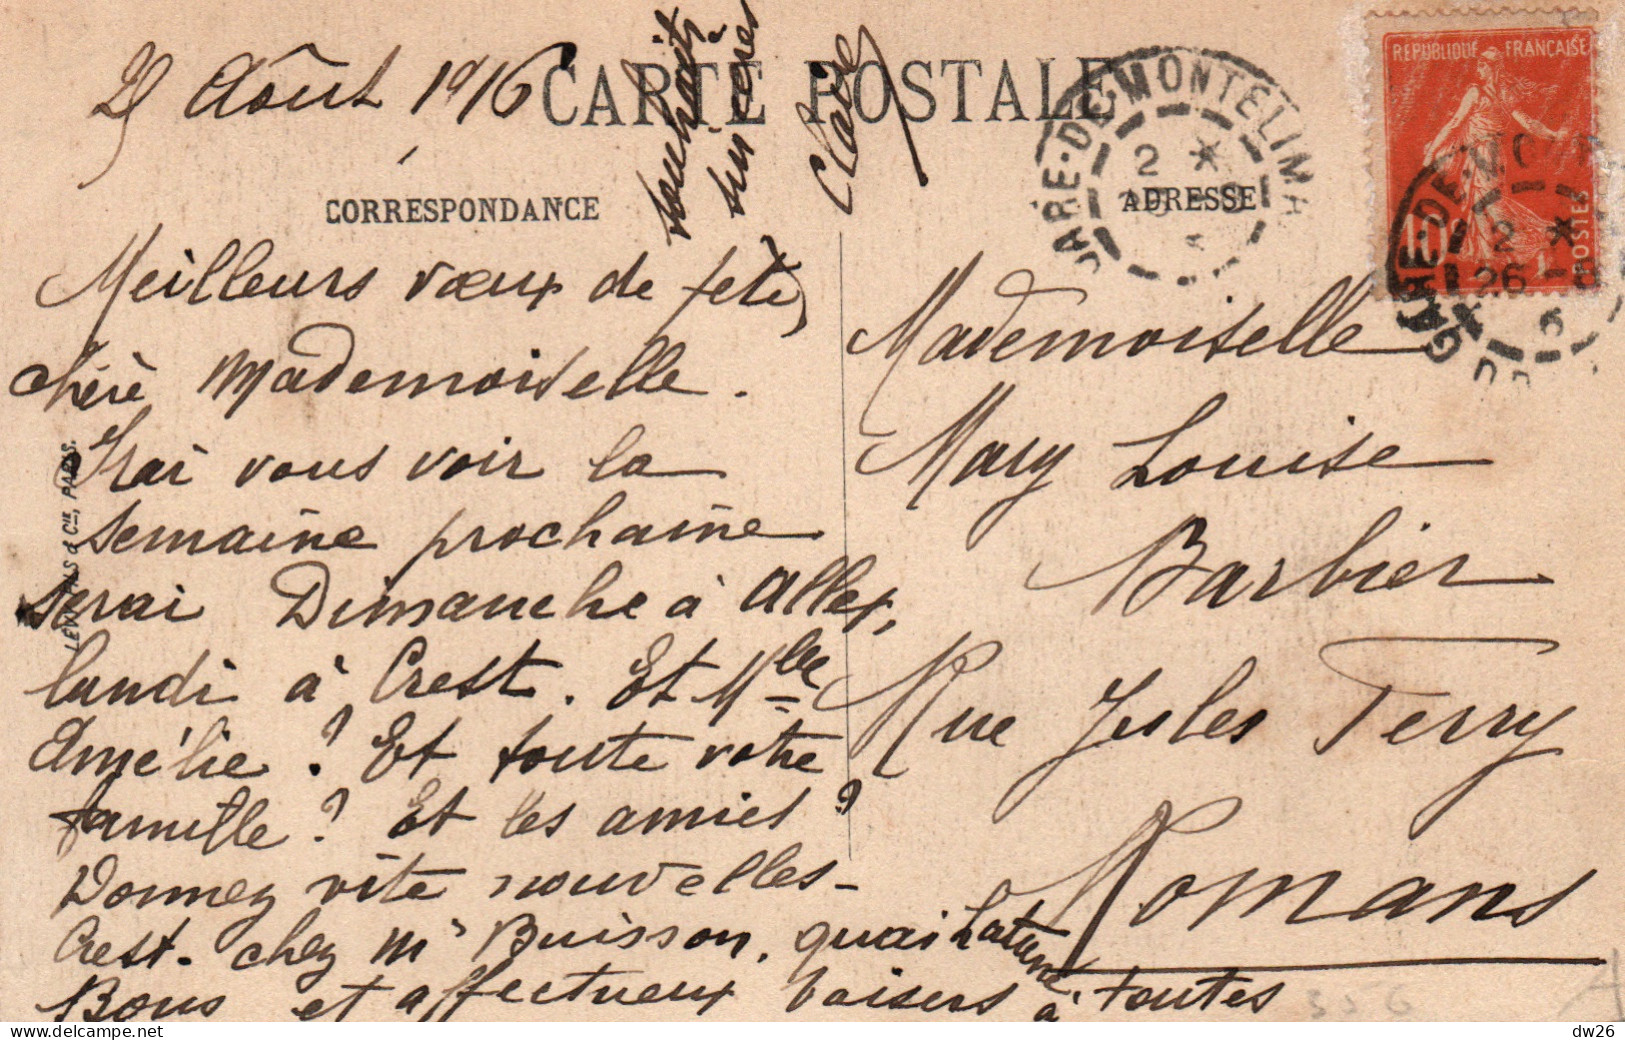 25 Août 1916
CARTE POSTALE
CORRESPONDANCE
ADRESSE
Meilleurs vœux de fête,
chère Mademoiselle.
Irai vous voir la
semaine prochaine
serai Dimanche à Allex,
lundi à Crest. Et Mlle
Amélie? Et toute votre
famille? Et les amies?
Donnez vite nouvelles-
Crest- chez Mr Buisson, quai Latune
Bons et affectueux baisers à toutes
souhaits
sincères
Claire
Mademoiselle
Mary Louise
Barbier
Rue Jules Ferry
Romans
LEVY FILS & CIE, PARIS.
REPUBLIQUE FRANÇAISE
POSTES
GARE-DE-MONTELIMAR
GARE-DE-MO
26
dw26